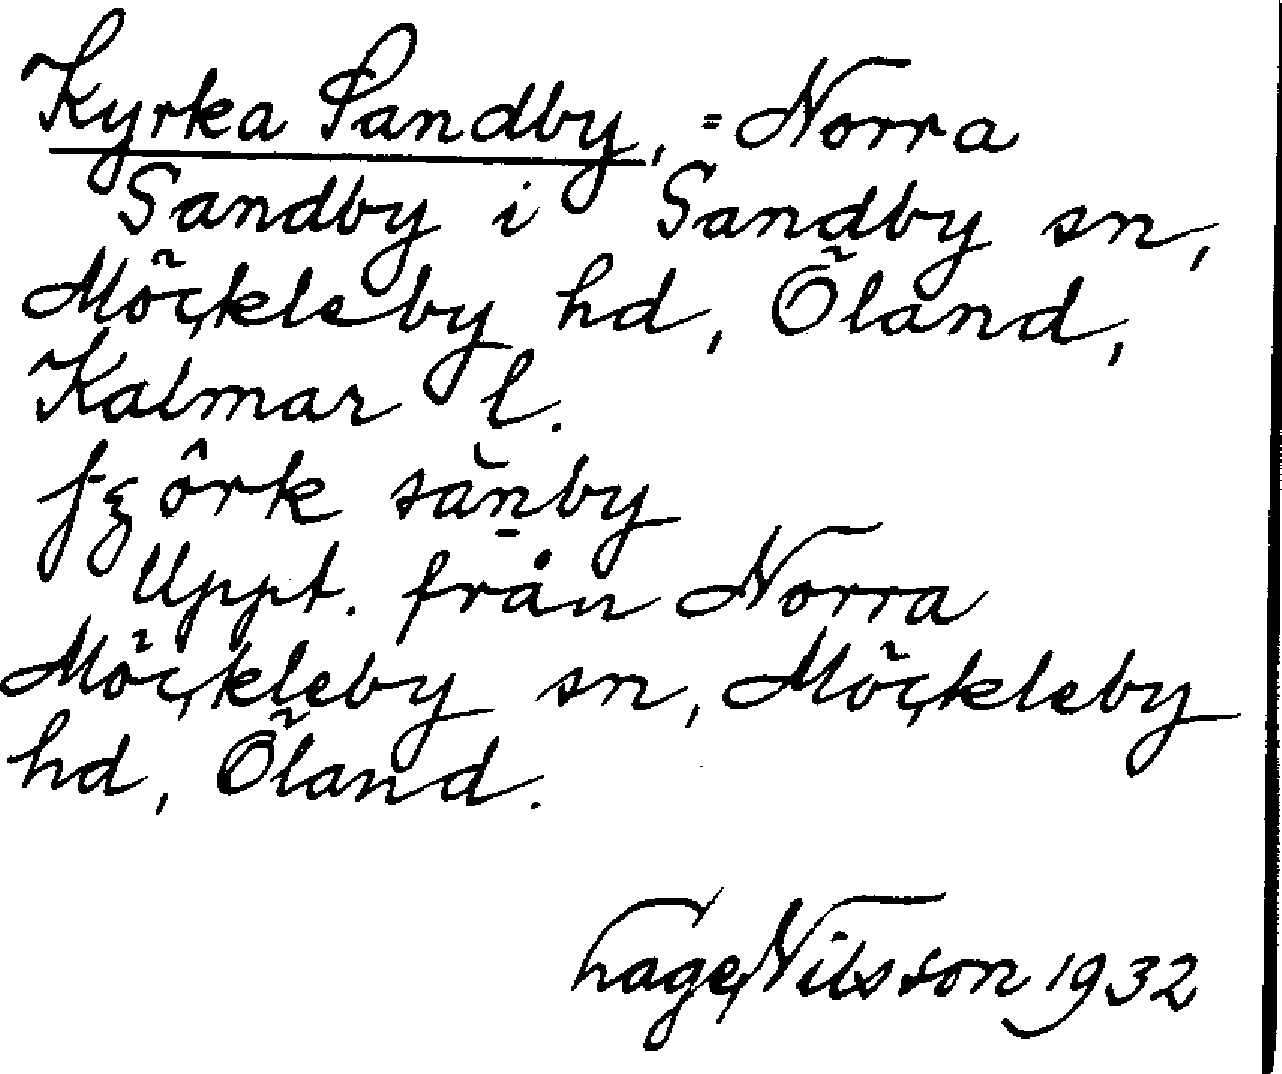 Kyrka Sandby, = Norra
Sandby i Sandby sn,
Möckleby hd, Öland,
Kalmar l.
sänby
Uppt. från Norra
Möckleby sn, Möckleby
hd, Öland.
Hage Nilsson 1932